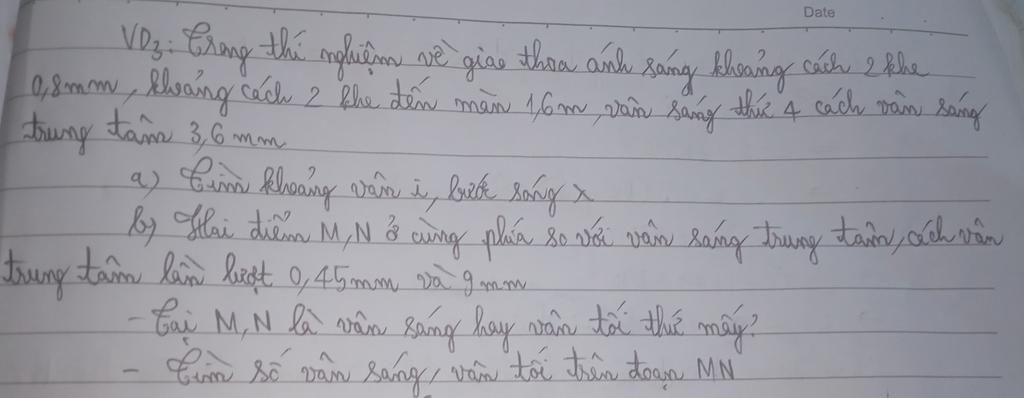 Date
VD3: Trong thí nghiệm về giao thoa ánh sáng khoảng cách 2 khe
0,8mm, khoảng cách 2 khe đến màn 1,6m, vân sáng thứ 4 cách vân sáng
trung tâm 3,6 mm
a) Tìm khoảng vân i, bước sóng λ
b) Hai điểm M, N ở cùng phía so với vân sáng trung tâm, cách vân
trung tâm lần lượt 0,45mm và 9mm
- Tại M, N là vân sáng hay vân tối thứ mấy?
- Tìm số vân sáng, vân tối trên đoạn MN